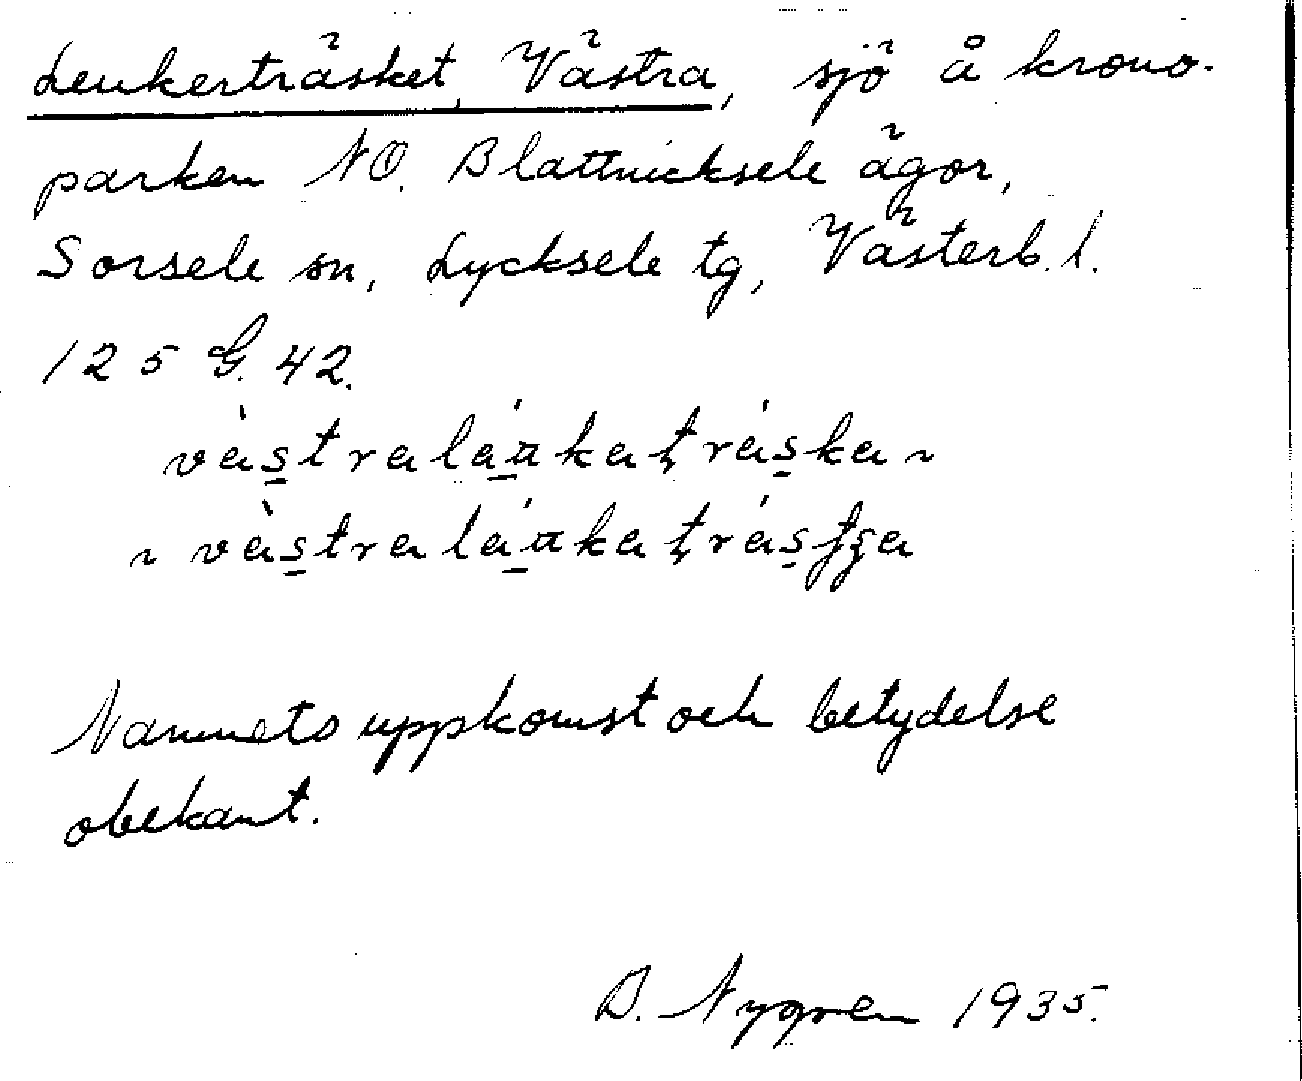 Leukerträsket, Västra, sjö å krono-
parken NO. Blattnicksele ägor,
Sorsele sn, Lycksele tg, Västerb. l.
125 G. 42.
västralänkaträska ~
~ västralänkaträsʃʒa
Namnets uppkomst och betydelse
obekant.
B. Nygren 1935.